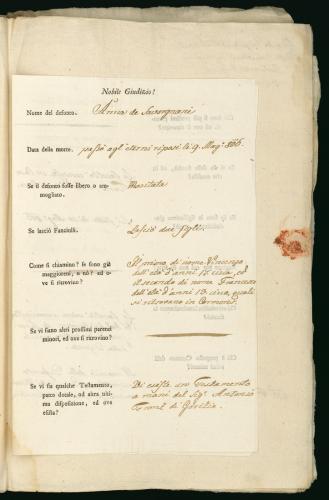 Nobile Giudizio!
Nome del defonto. Anna de
Data della morte. passò agl' eterni riposi li 9. Magº
Se il defonto fosse libero o am-
mogliato. Maritata
Se lasciò Fanciulli. Lasciò due figli.
Come si chiamino? se sono già Il primo di nome Vincenzo
maggiorenni, o nò? ad o- dell' età d'anni 15 circa, ed
ve si ritrovino? il secondo di nome Francesco
dell' età d'anni 13 circa, quali
si ritrovano in Cormons.
Se vi siano altri prossimi parenti
minori, ed ove si ritrovino?
Se vi sia qualche Testamento, Di esso un Testamento
patto dotale, od altra ultima a mani del Sigr. Antonio
disposizione, ed ove di Gorizia.
esista?